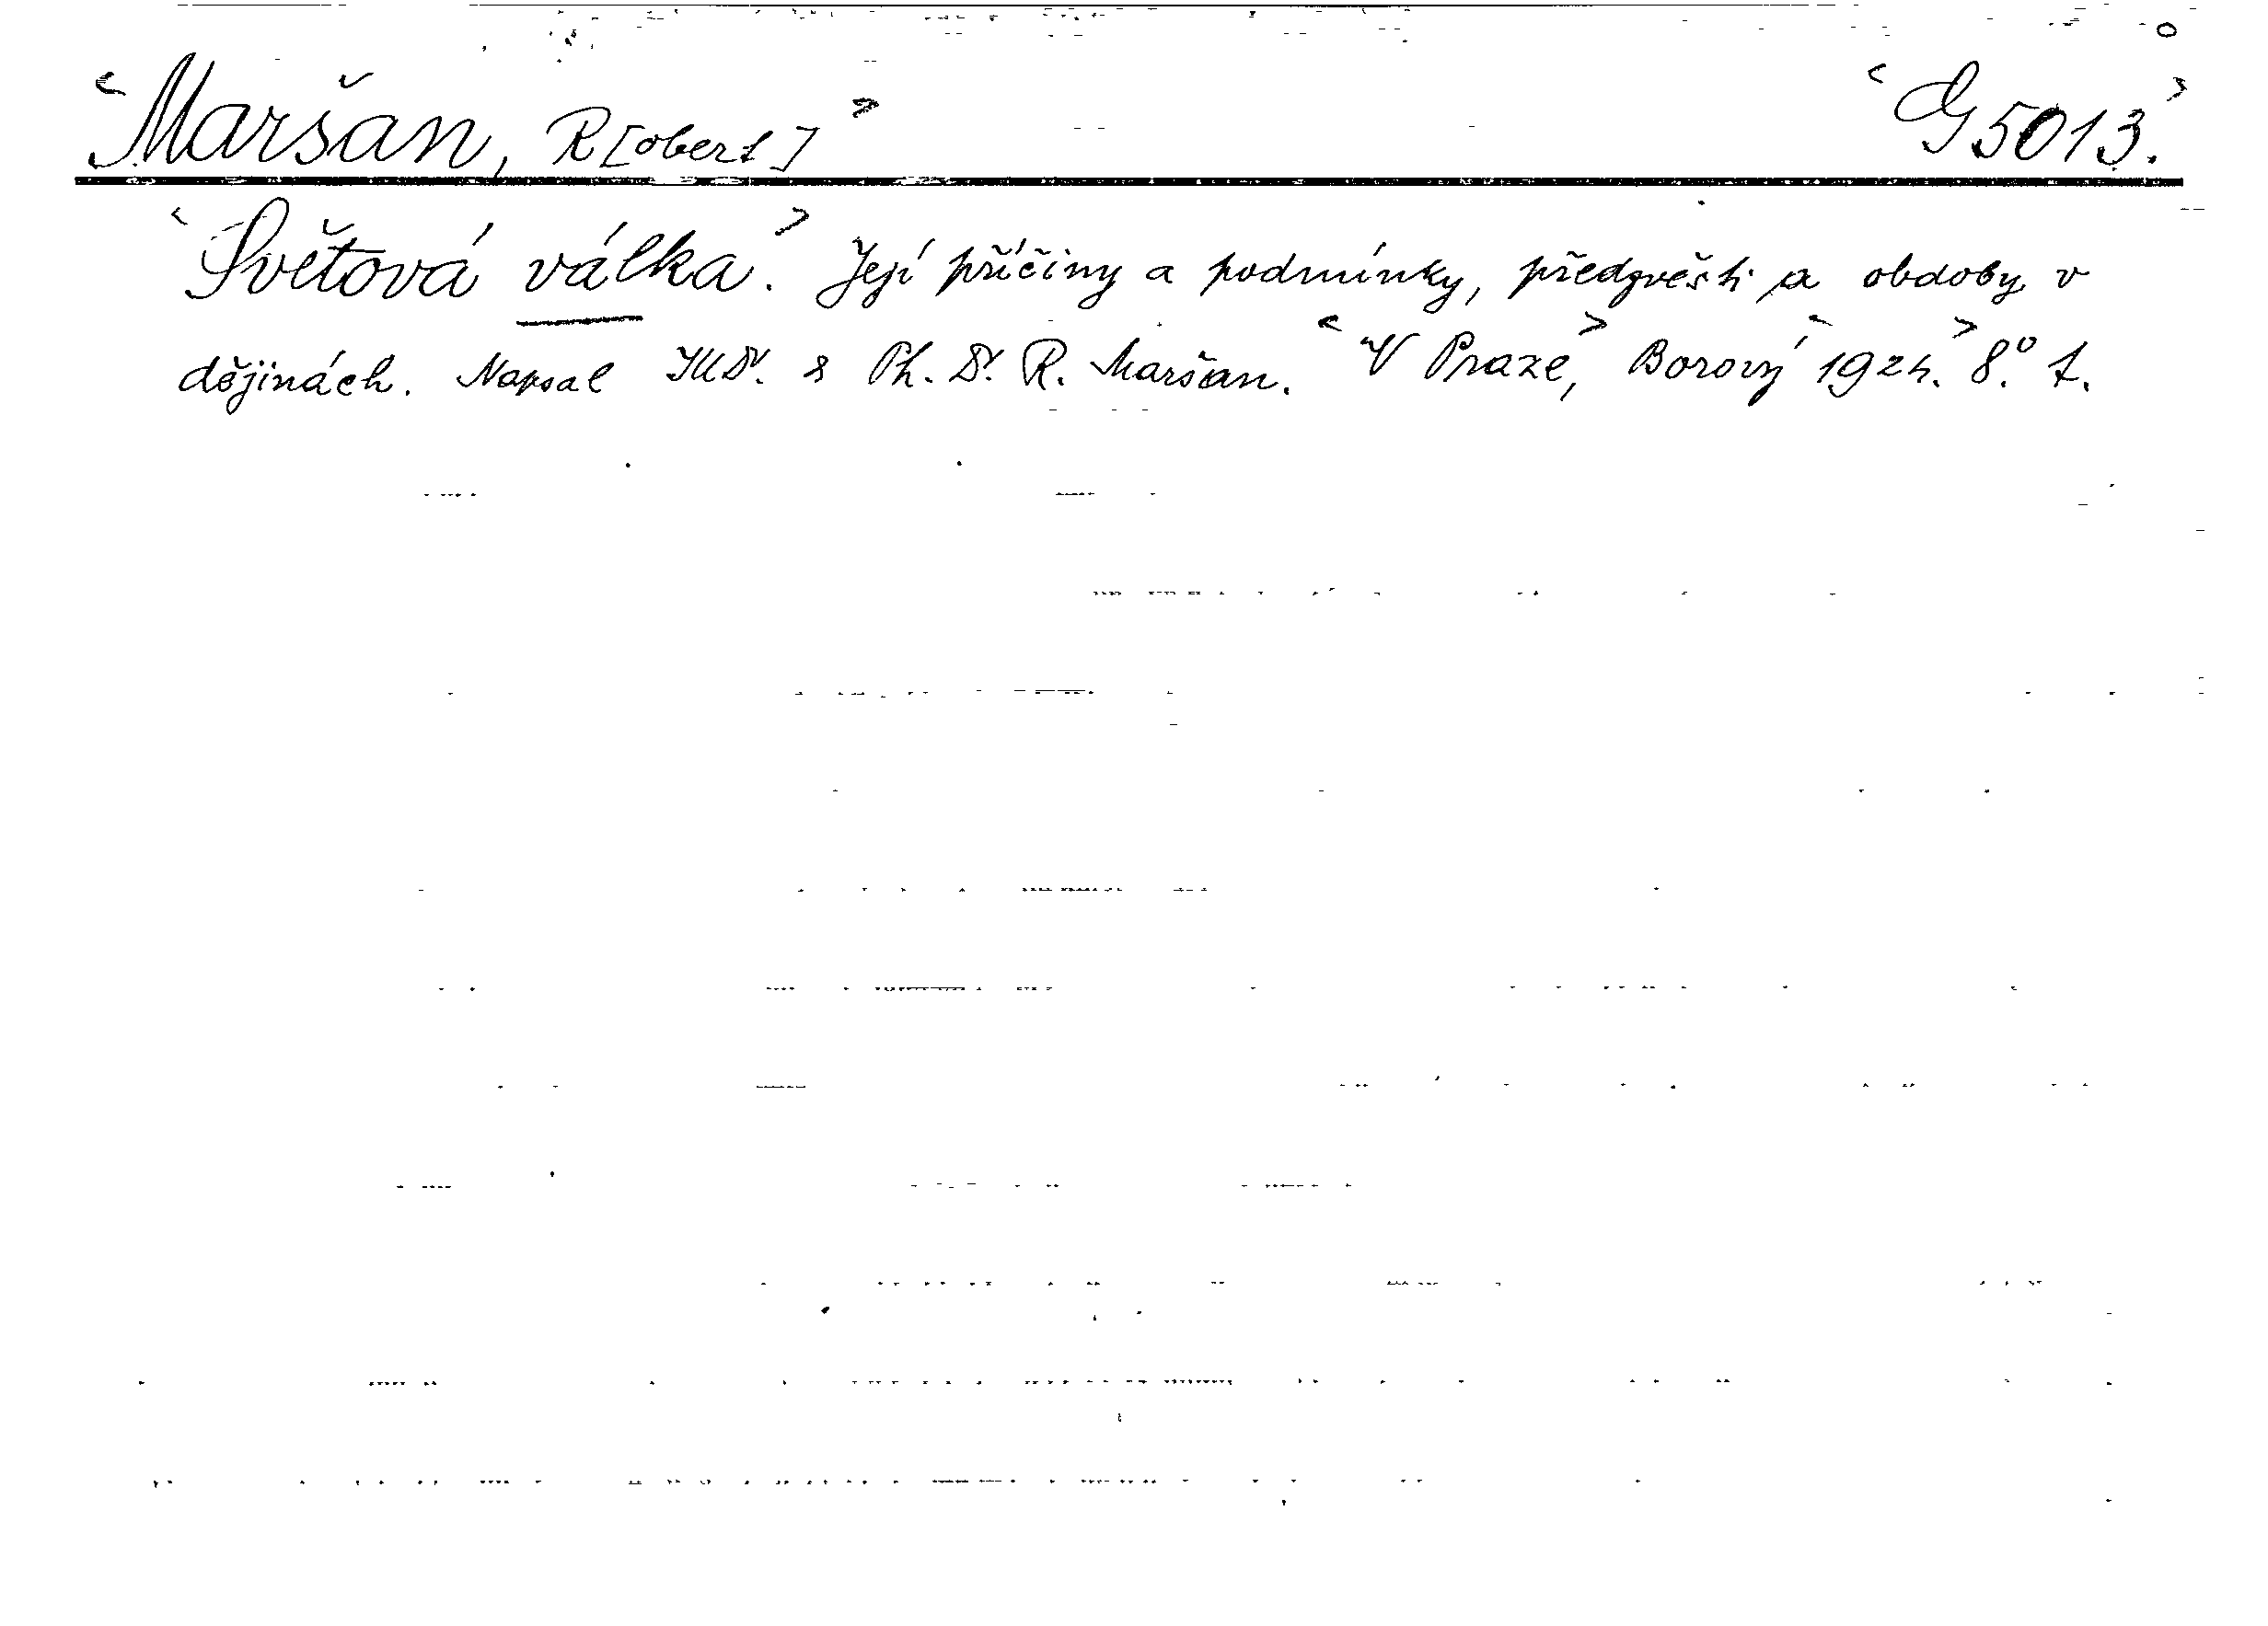 <Maršan, R[obert]> <G 5013.>
<Světová válka.> Její příčiny a podmínky, předzvěsti a obdoby v
dějinách. Napsal JUDr. & Ph. Dr. R. Maršan. <V Praze,> Borový <1924.> 8.° t.